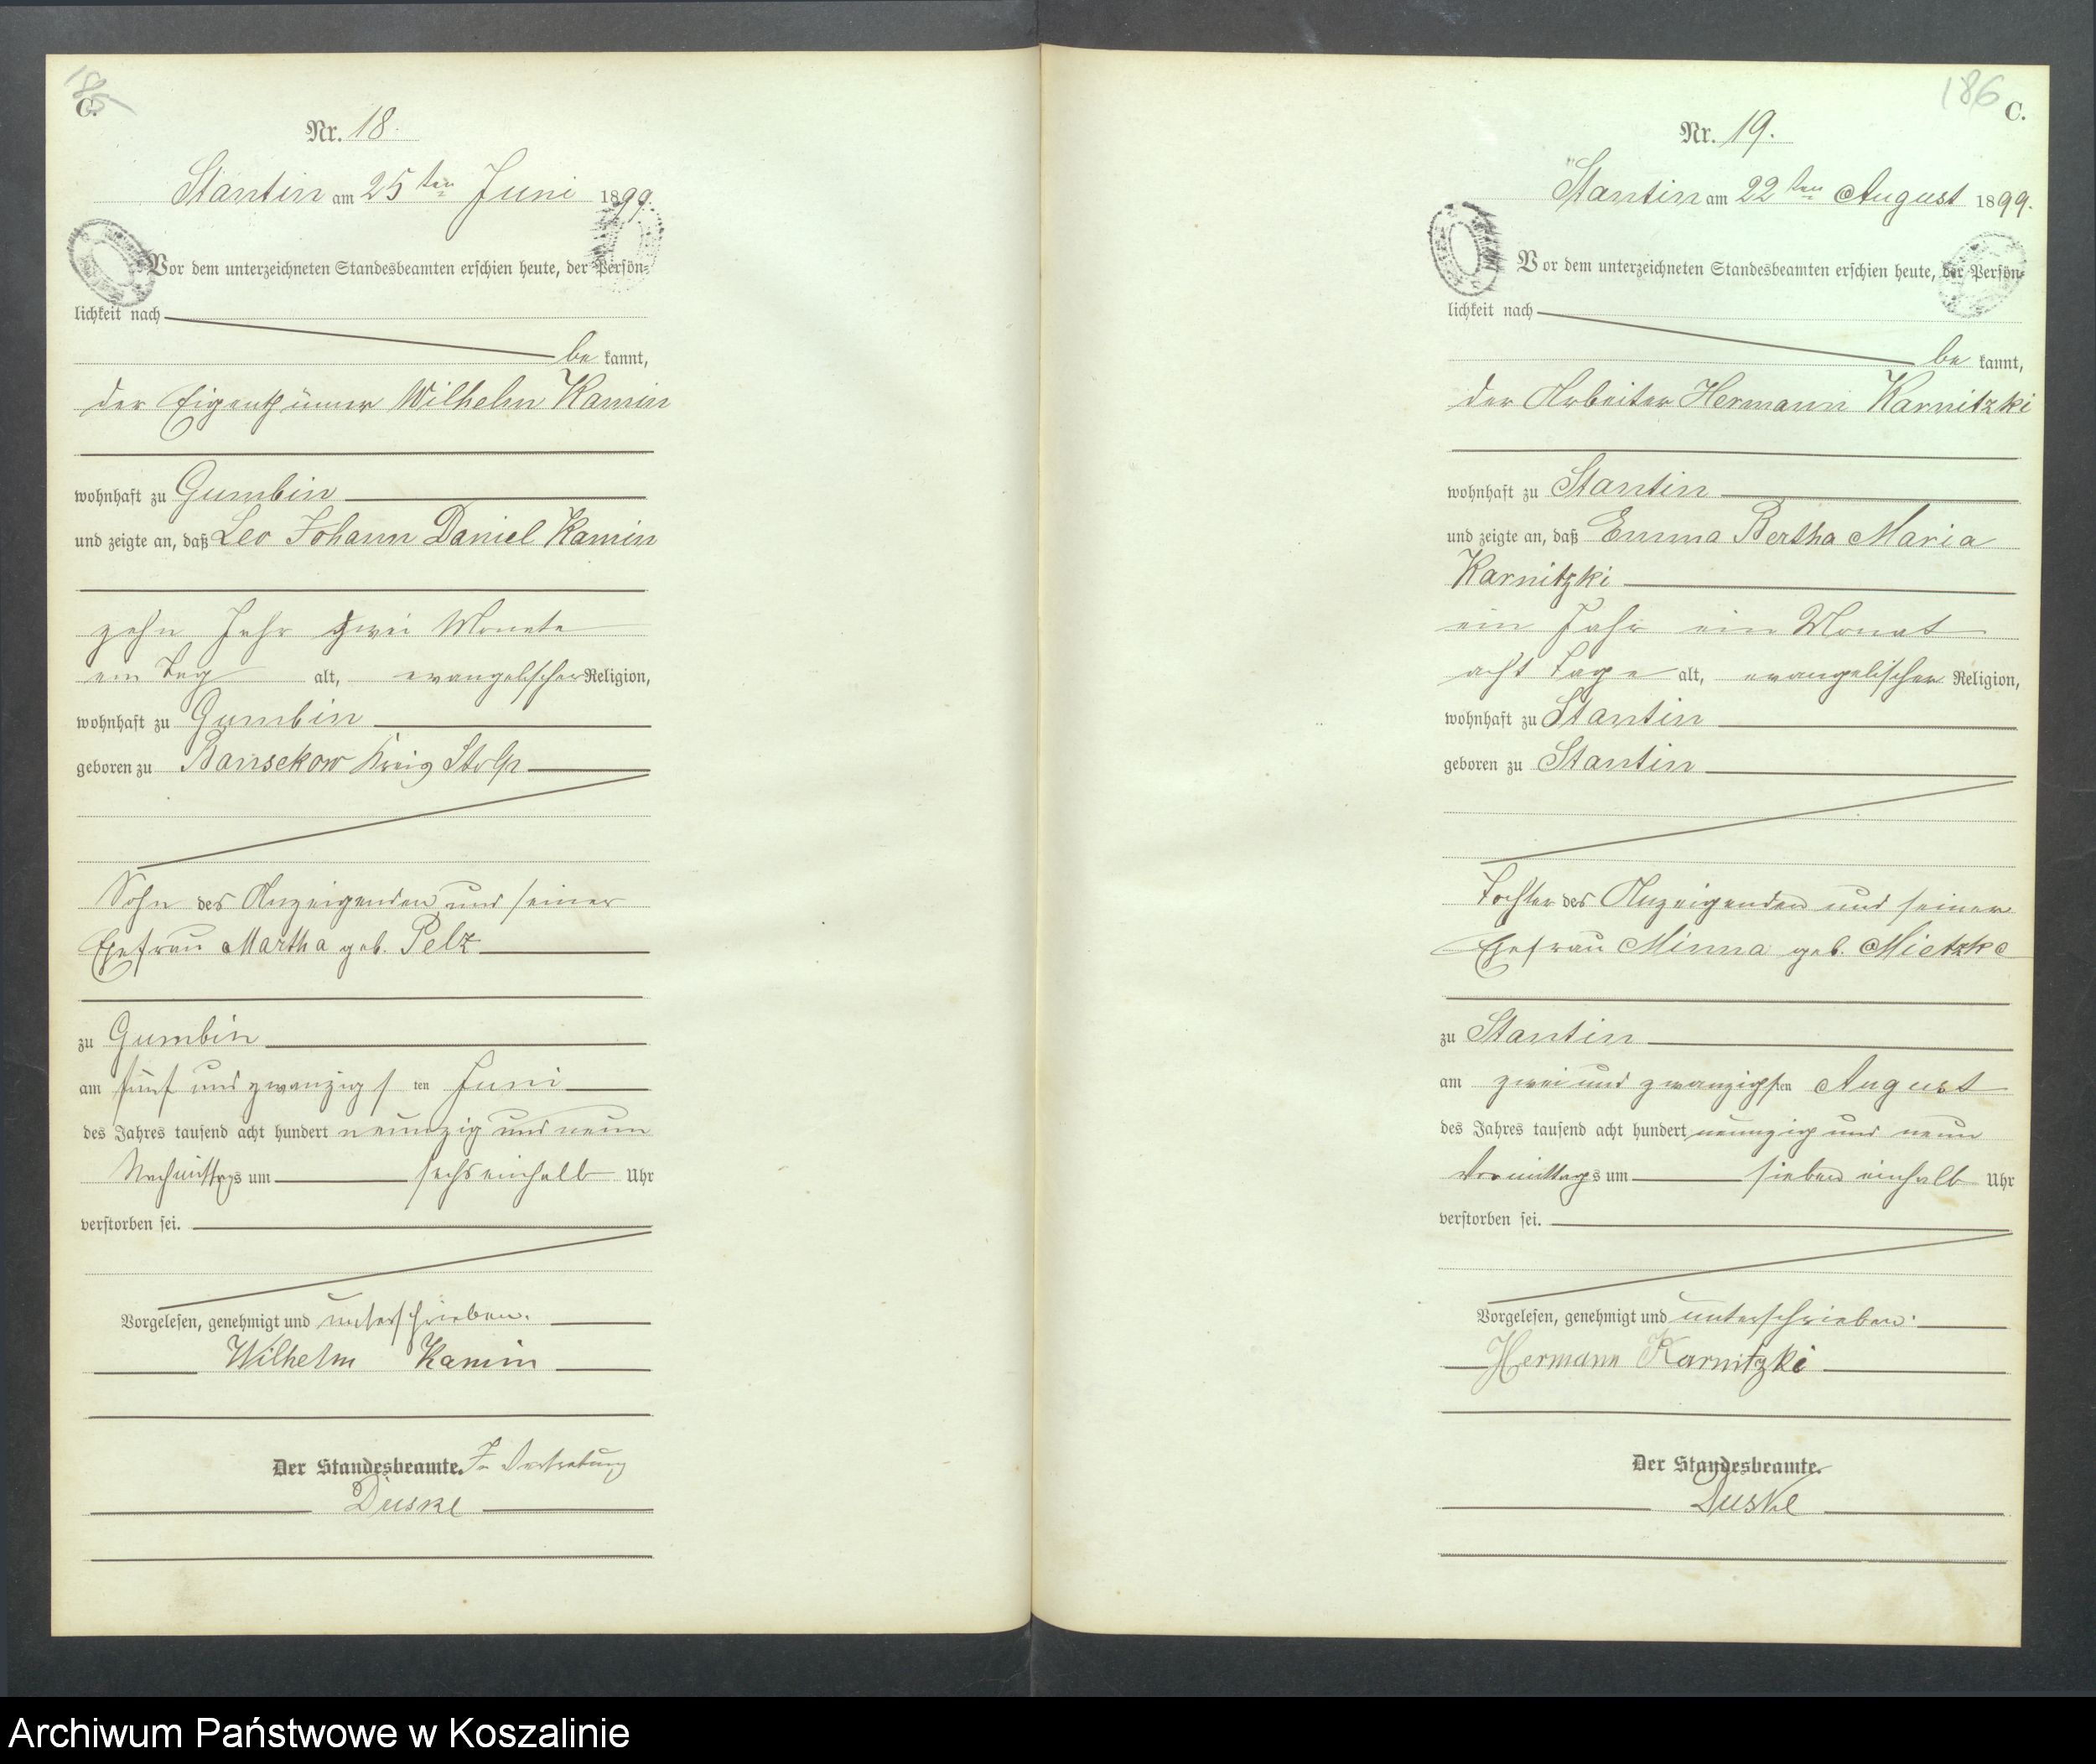 185
C.
Nr. 18.
Stantin am 25ten Juni 1899.
Vor dem unterzeichneten Standesbeamten erschien heute, der Persön-
lichkeit nach
be kannt,
der Eigenthümer Wilhelm Kamin
wohnhaft zu Gumbin
und zeigte an, daß Leo Johann Daniel Kamin
zehn Jahr zwei Monate
ein Tag alt, evangelischer Religion,
wohnhaft zu Gumbin
geboren zu Bansekow Kreis Stolp
Sohn des Anzeigenden und seiner
Ehefrau Martha geb. Pelz
zu Gumbin
am fünf und zwanzigsten Juni
des Jahres tausend acht hundert neunzig und neun
Nachmittags um sechseinhalb Uhr
verstorben sei.
Vorgelesen, genehmigt und unterschrieben.
Wilhelm Kamin
Der Standesbeamte. In Vertretung
Duske
186
C.
Nr. 19.
Stantin am 22ten August 1899.
Vor dem unterzeichneten Standesbeamten erschien heute, der Persön-
lichkeit nach
be kannt,
der Arbeiter Hermann Karnitzki
wohnhaft zu Stantin
und zeigte an, daß Emma Bertha Maria
Karnitzki
ein Jahr ein Monat
acht Tage alt, evangelischer Religion,
wohnhaft zu Stantin
geboren zu Stantin
Tochter des Anzeigenden und seiner
Ehefrau Minna geb. Mietzke
zu Stantin
am zwei und zwanzigsten August
des Jahres tausend acht hundert neunzig und neun
Vormittags um sieben einhalb Uhr
verstorben sei.
Vorgelesen, genehmigt und unterschrieben.
Hermann Karnitzki
Der Standesbeamte.
Duske
Archiwum Państwowe w Koszalinie